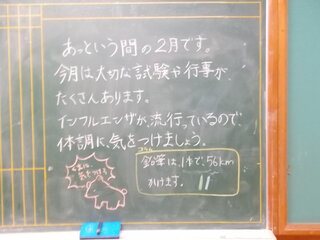 あっという間の2月です。
今月は大切な試験や行事が
たくさんあります。
インフルエンザが流行っているので、
体調に気をつけましょう。
鉛筆は、1本で、56km
かけます。